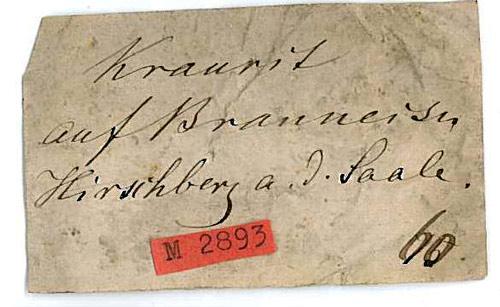 Kraurit
auf Brauneisen
Hirschberg a. d. Saale.
M 2893
60